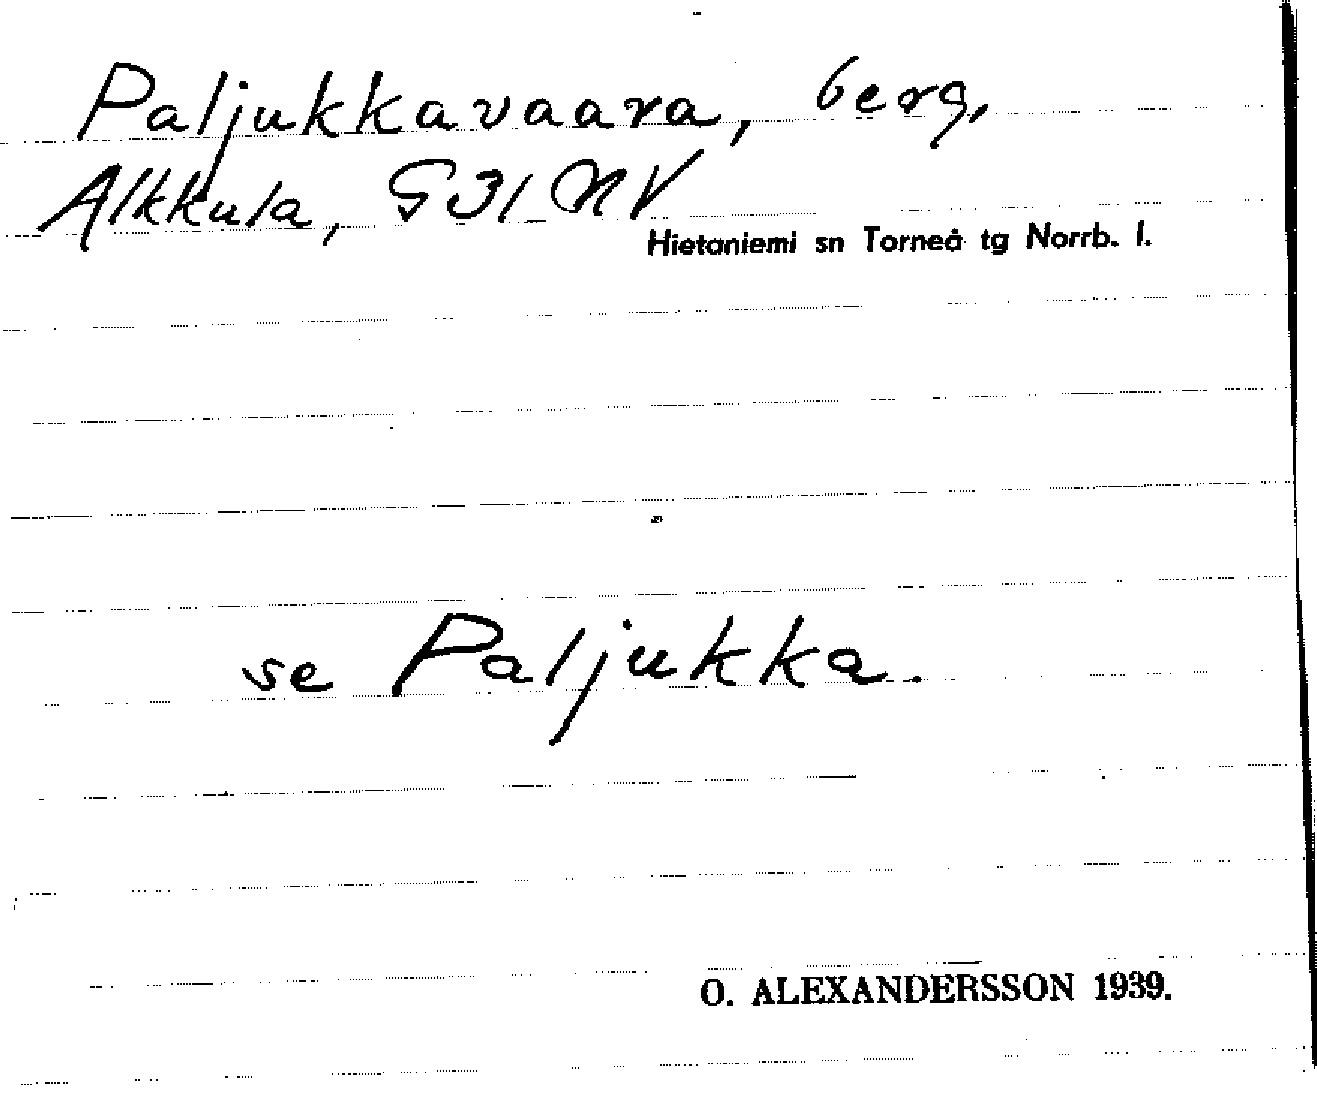 Paljukkavaara, berg,
Alkkula, G31 NV
Hietaniemi sn Torneå tg Norrb. l.
se Paljukka.
O. ALEXANDERSSON 1939.